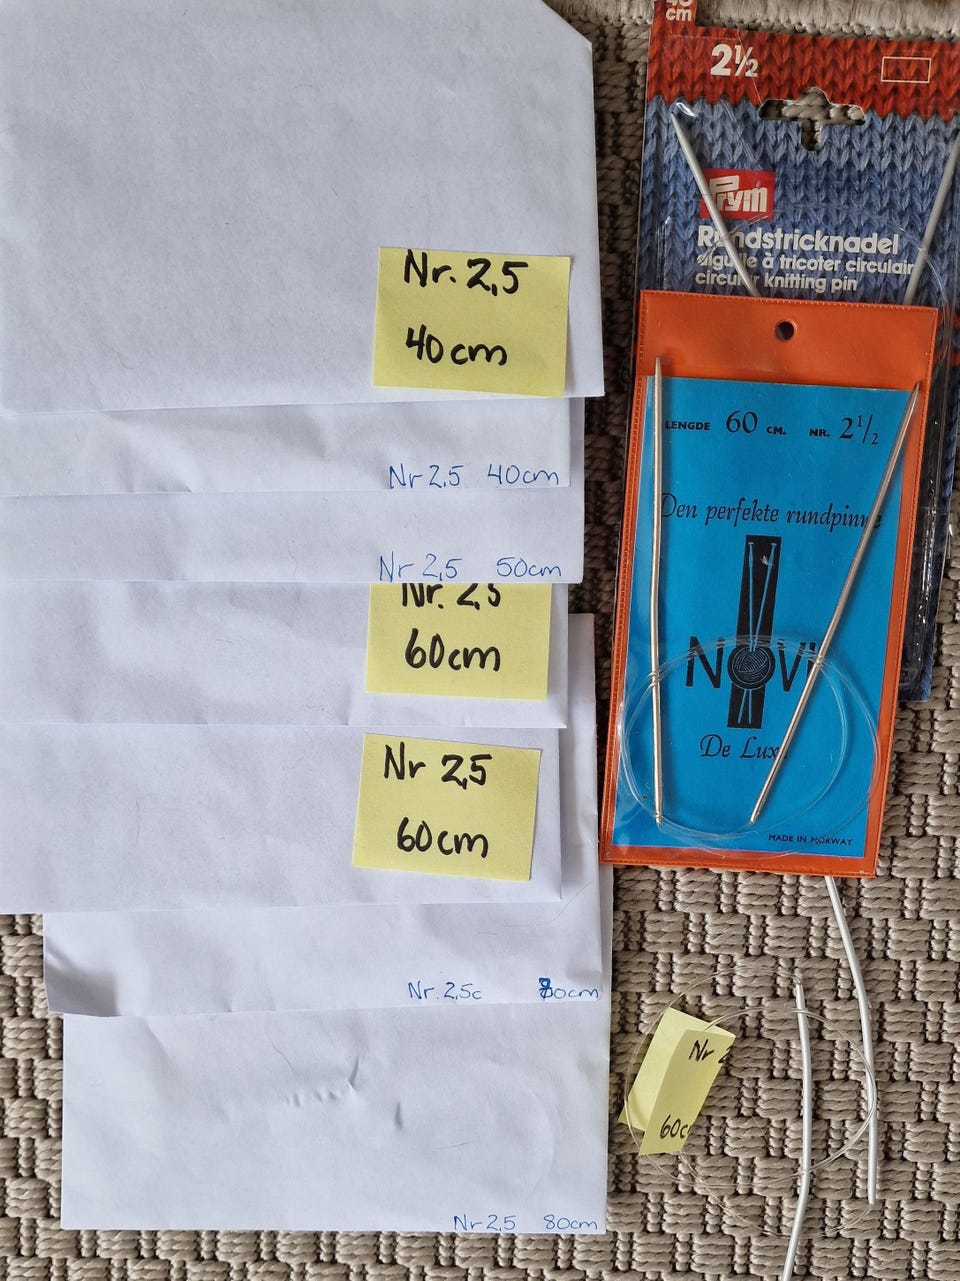 Nr. 2,5
40 cm
Nr 2,5 40cm
Nr 2,5 50cm
Nr. 2,5
60cm
Nr 2,5
60cm
Nr. 2,5c 80cm
Nr 2,5 80cm
40
cm
2½
Prym
Rundstricknadel
aiguille à tricoter circulair
circular knitting pin
LENGDE 60 CM. NR. 2½
Den perfekte rundpinne
NOVI
De Luxe
MADE IN NORWAY
Nr 2
60c